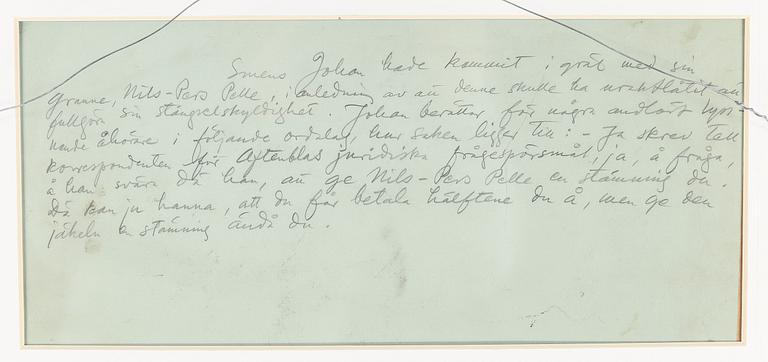 Smens Johan hade kommit i gräl med sin
granne, Nils-Pers Pelle, i anledning av att denne skulle ha uraktlåtit att
fullgöra sin stängselskyldighet. Johan berättar för några andlöst lyss-
nande åhörare i följande ordalag, hur saken ligger till: - Ja skrev tell
korrespondenten för Aftenblas juridiska frågespörsmål, ja, å fråga,
å han svara då han, att ge Nils-Pers Pelle en stämning du.
Då kan ju hanna, att du får betala hälftene du å, men ge den
jäkeln en stämning ändå du.